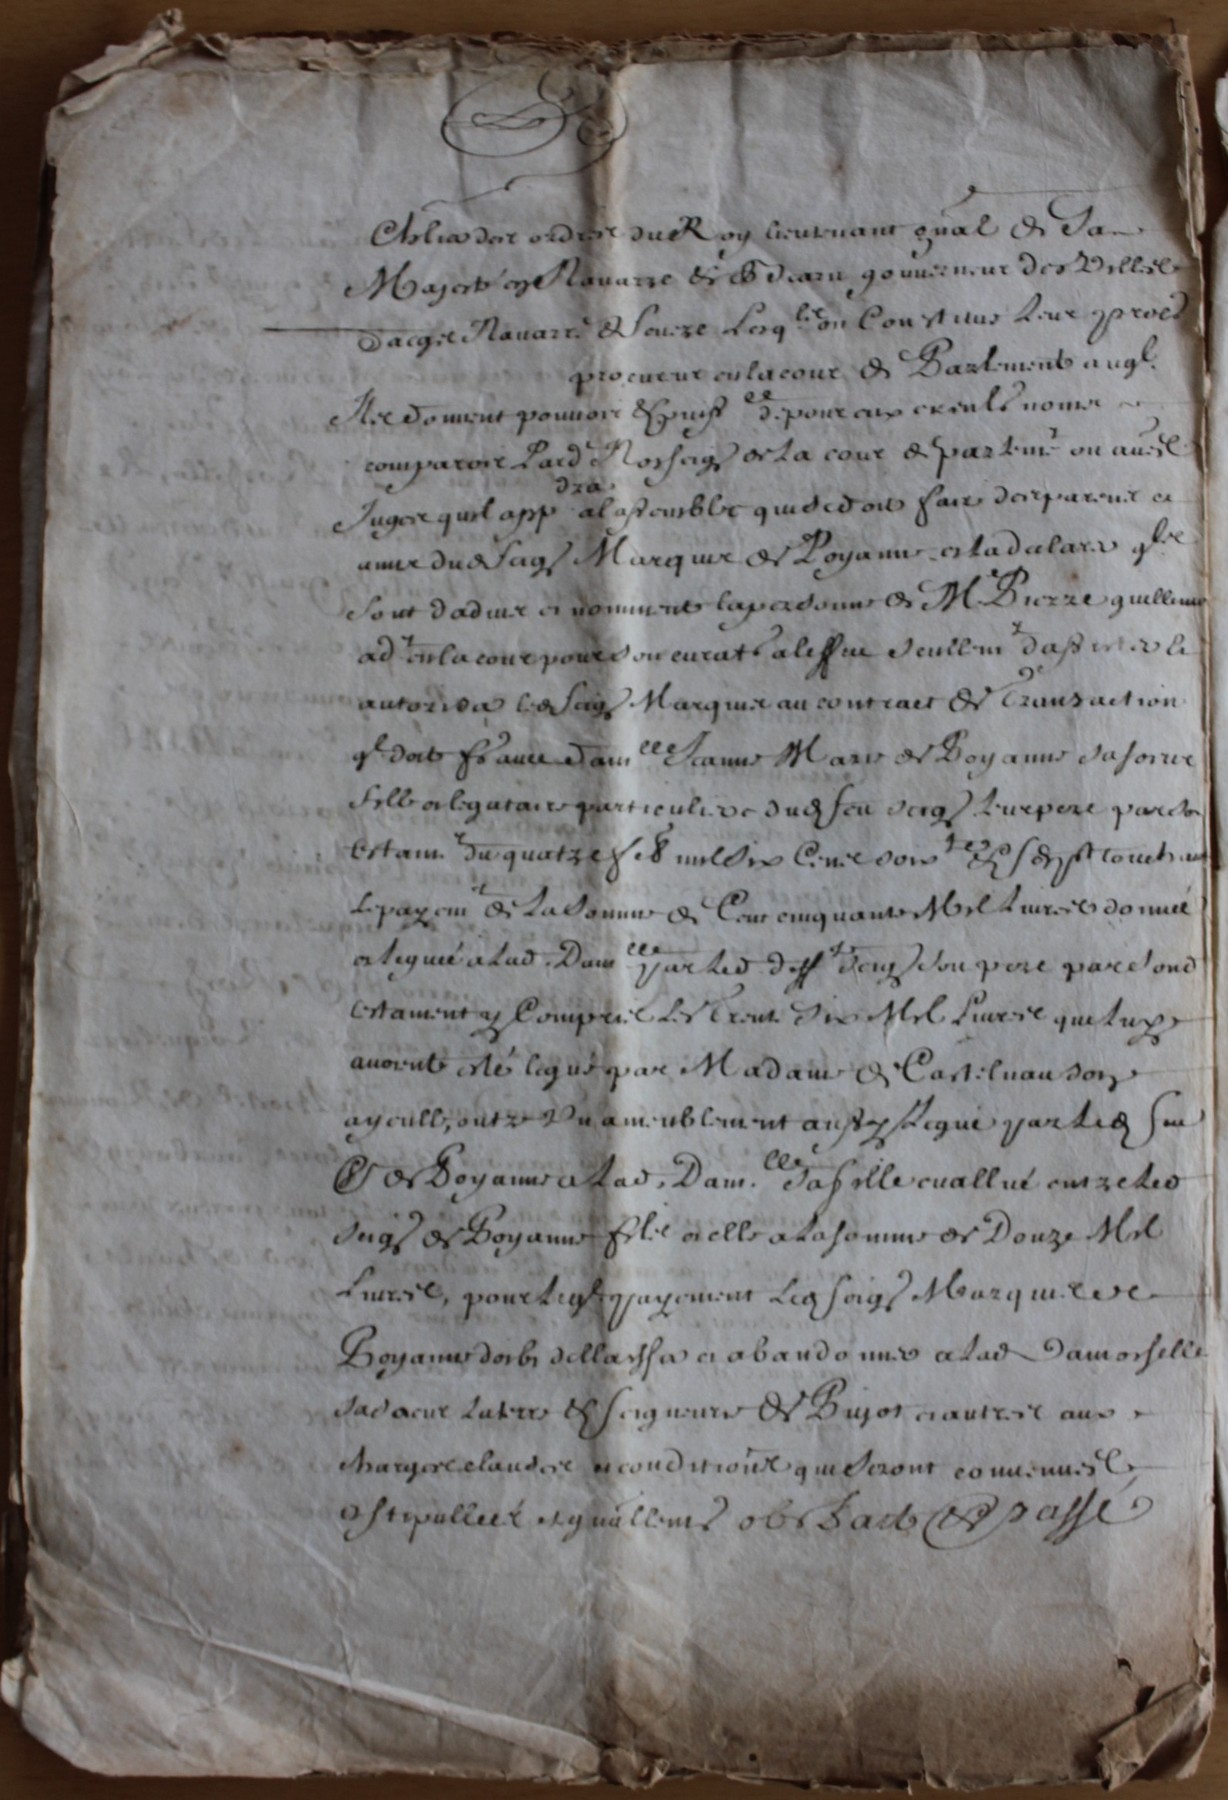 Chlier des ordres du Roy lieutenant gnãl de Sa
Majesté en Navarre et Bearn gouverneur des Villes
Dacqs Navarrx et Lesq^lles on Constitué leur
procureur en la cour de Parlement auql
Ils donnent pouvoir de pour eux et en leˢ noms
comparoir Pard Nosseigˢ de la cour de parlem^t ou aues
Juges quil app^dra a lassemblee qui se doit faire des parens et
amis dud Seigˢ Marquis de Poyanne et la declarer qls
sont dadvis et nomment la personne de M^e Pierre
ad^t en la cour pour son curat^r a leffect seullem^t dassister et
autoriser led Seigˢ Marquis au contract de Transaction
ql doit avec dam^lle Jeanne Marie de Poyanne sa soeur
fille et legataire particuliere dud feu seigˢ leur pere par son
testam^t du quatze mil six Cens soix^te et sept touchant
le payem^t de la somme de Cent cinquante Mil Livres donnée
et leguée a lad. Dam^lle par led. deff^t seigˢ son pere par sond
testament y Compris les Trente Six Mil Livres que luy
avoient esté legué par Madame de Castelnau son
ayeulle, outre Un ameublement aussy legué par led feu
Sˢ de Poyanne a Lad. Dam.^lle sa fille evallué entre led
seigˢ de Poyanne fils et elle a la somme de Douze Mil
Livres, pour leql payement led seigˢ Marquis de
Poyanne doibt dellaisser et abandonner a lad damoiselle
sa soeur la terre et seigneurie de et autres aux
charges clauses et conditions qui seront convenues
et stipullees et quallent^s obs Sacte passé